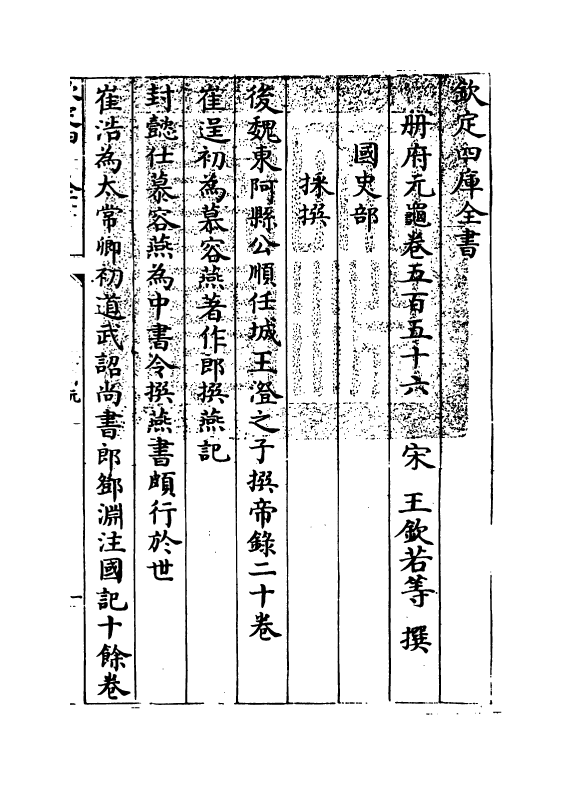 欽定四庫全書
冊府元龜卷五百五十六 宋 王欽若等 撰
國史部
採撰
後魏東阿縣公順任城王澄之子撰帝錄二十卷
崔逞初為慕容燕著作郎撰燕記
封懿仕慕容燕為中書令撰燕書頗行於世
崔浩為太常卿初道武詔尚書郎鄧淵注國記十餘卷